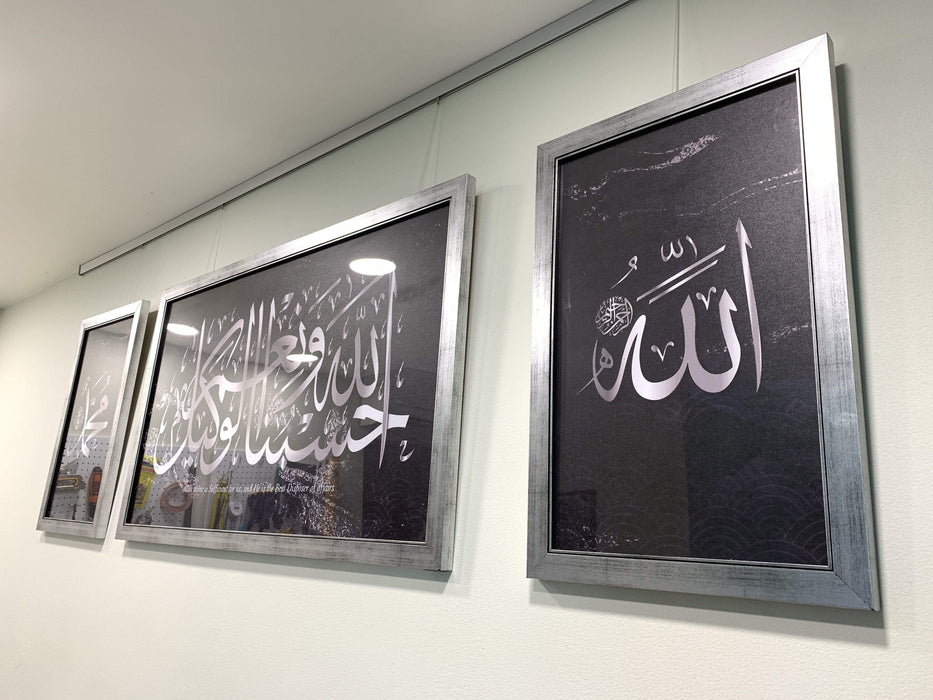 الله
حسبنا الله ونعم الوكيل
Allah alone is Sufficient for us, and He is the Best Disposer of affairs
محمد